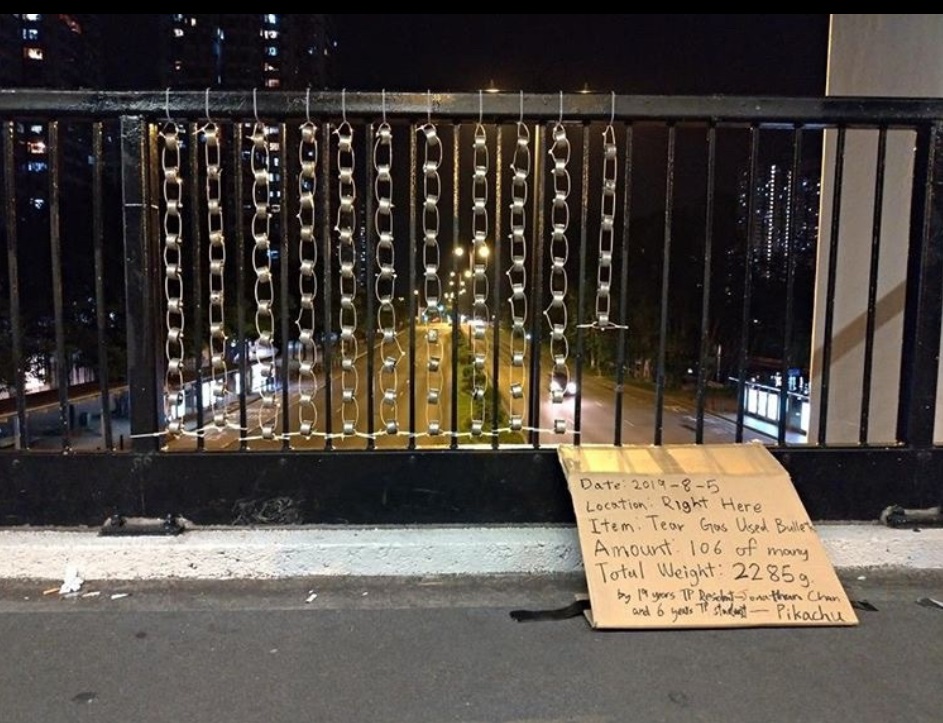 Date: 2019-8-5
Location: Right Here
Item: Tear Gas Used Bullet
Amount: 106 of many
Total Weight: 2285g
by 19 years TP Resident - Jonathan Chan
and 6 years TP student — Pikachu